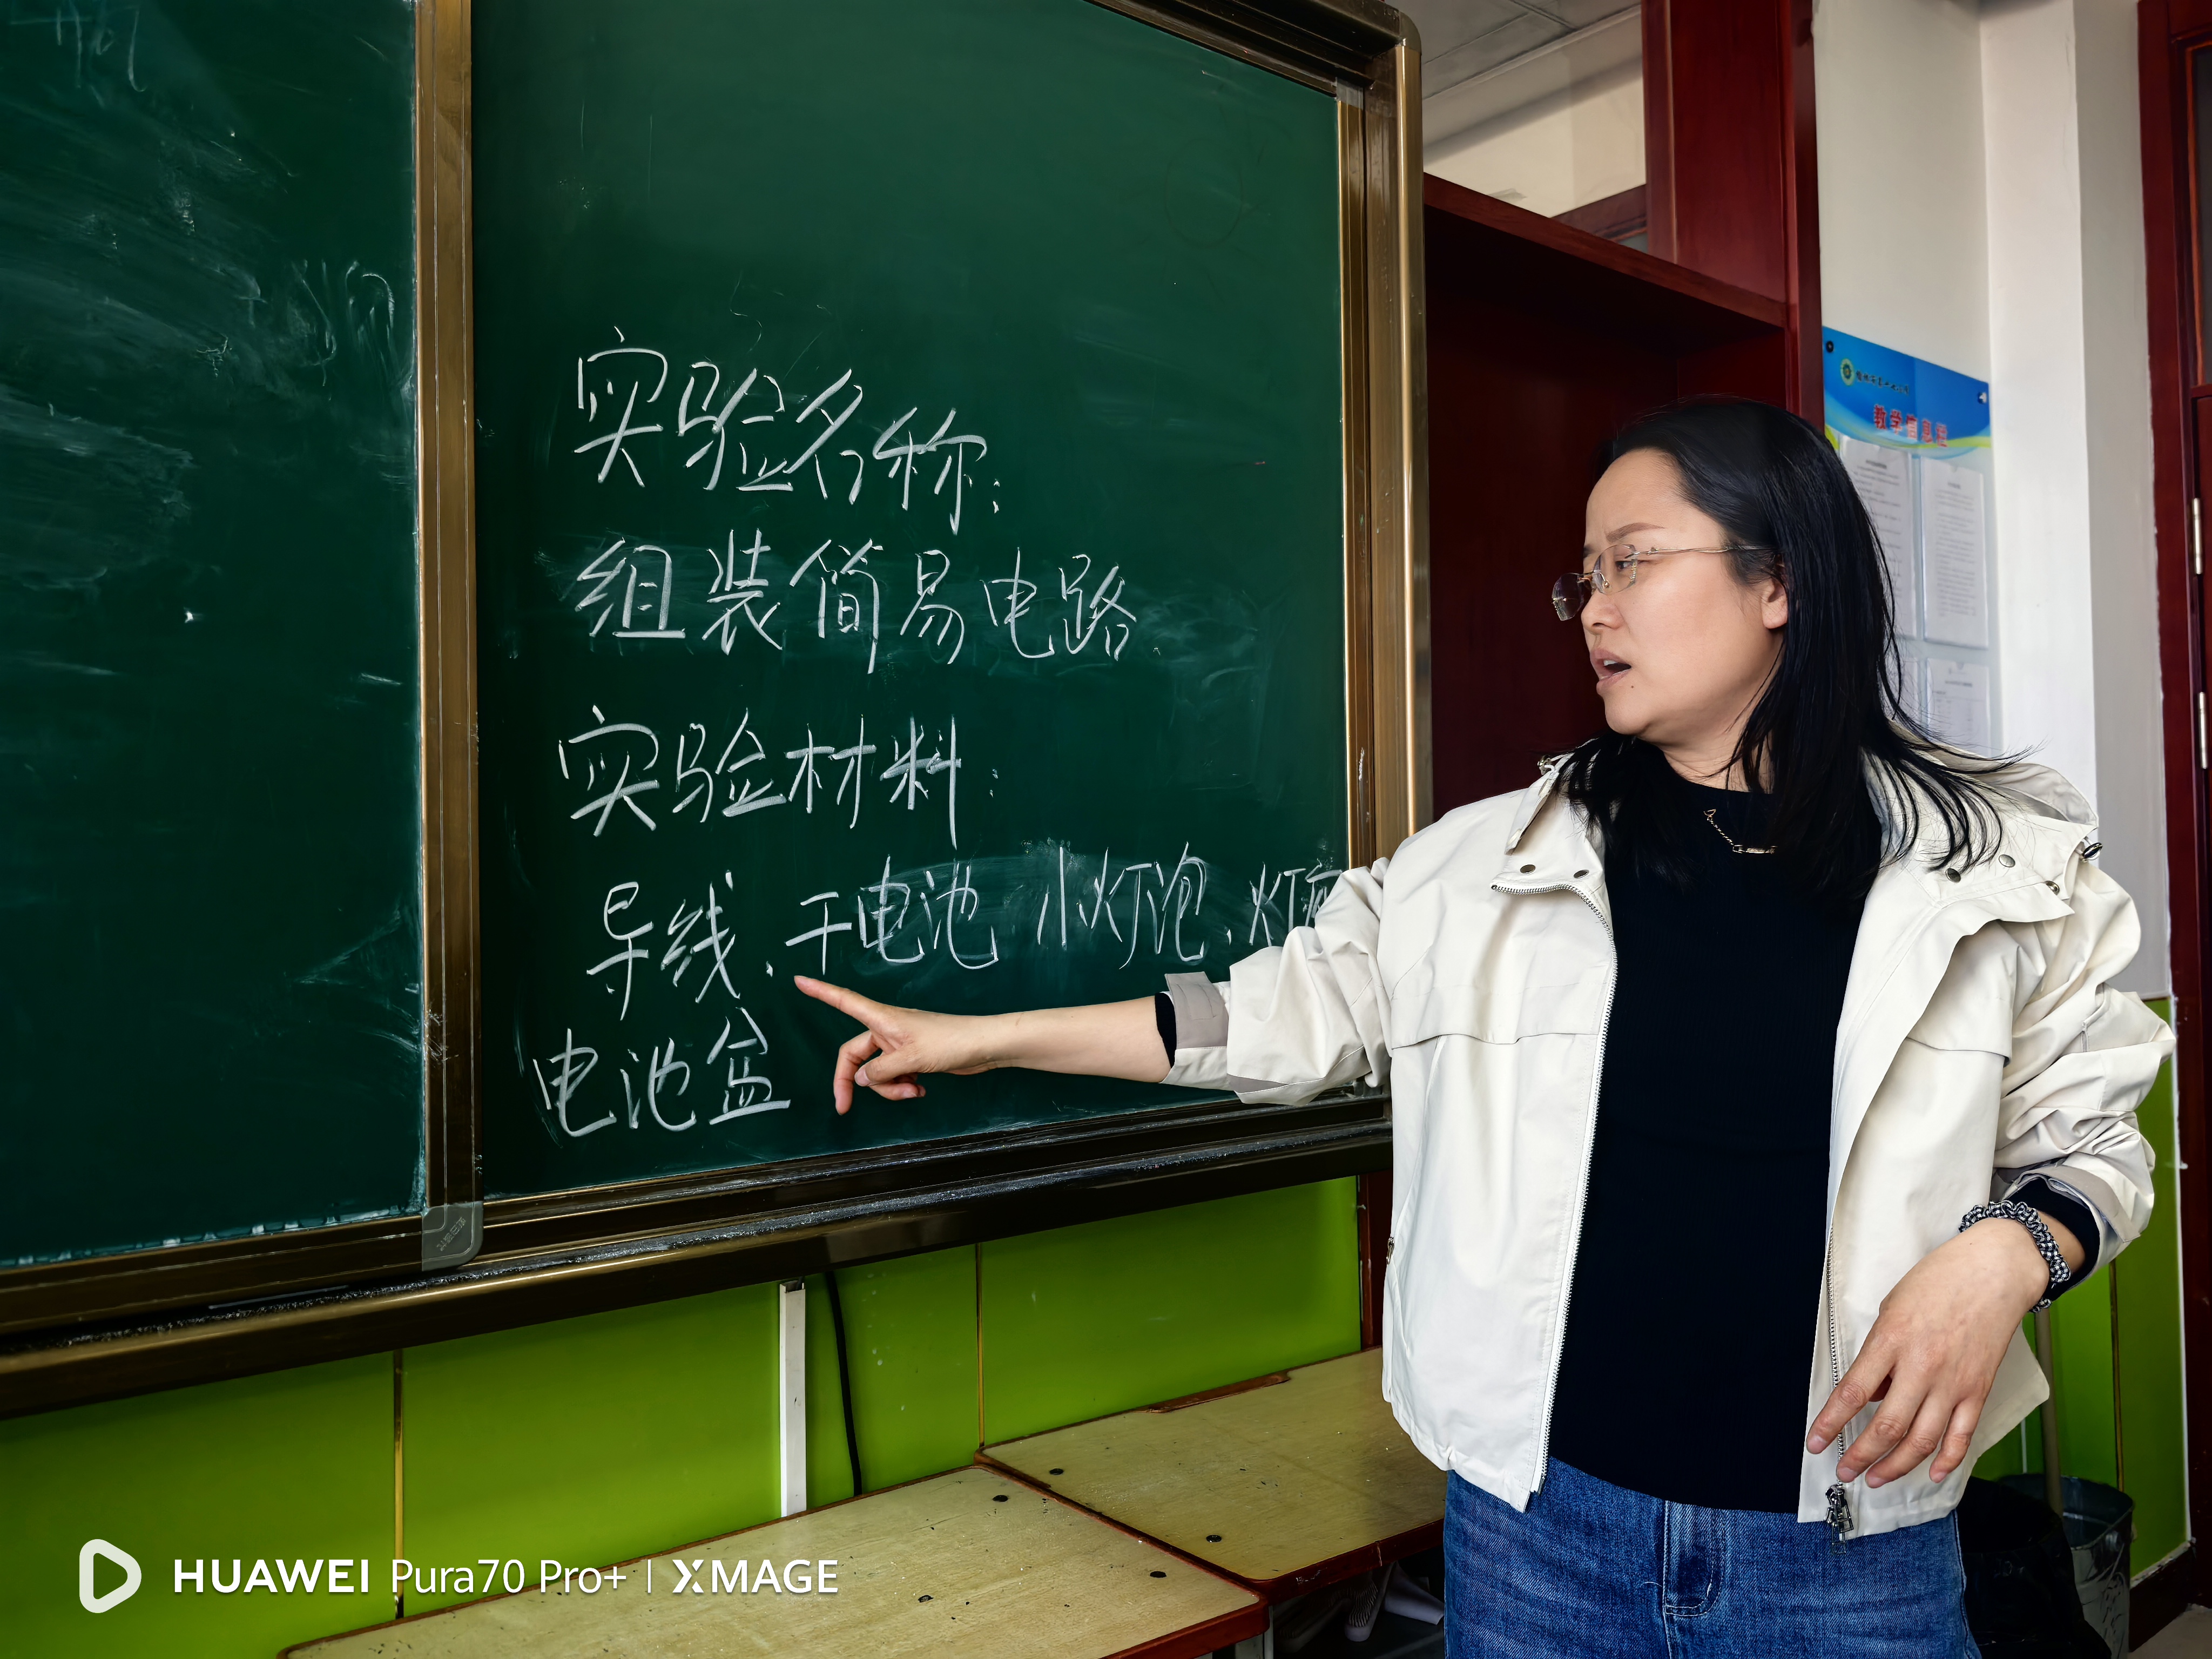 实验名称:
组装简易电路
实验材料:
导线、干电池 小灯泡、灯座
电池盒
教学信息栏
HUAWEI Pura70 Pro+ | XMAGE